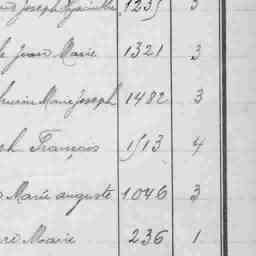 Joseph 1235 3
Jean Marie 1321 3
Marie Joseph 1482 3
François 1513 4
Marie auguste 1.046 3
Marie 236 1